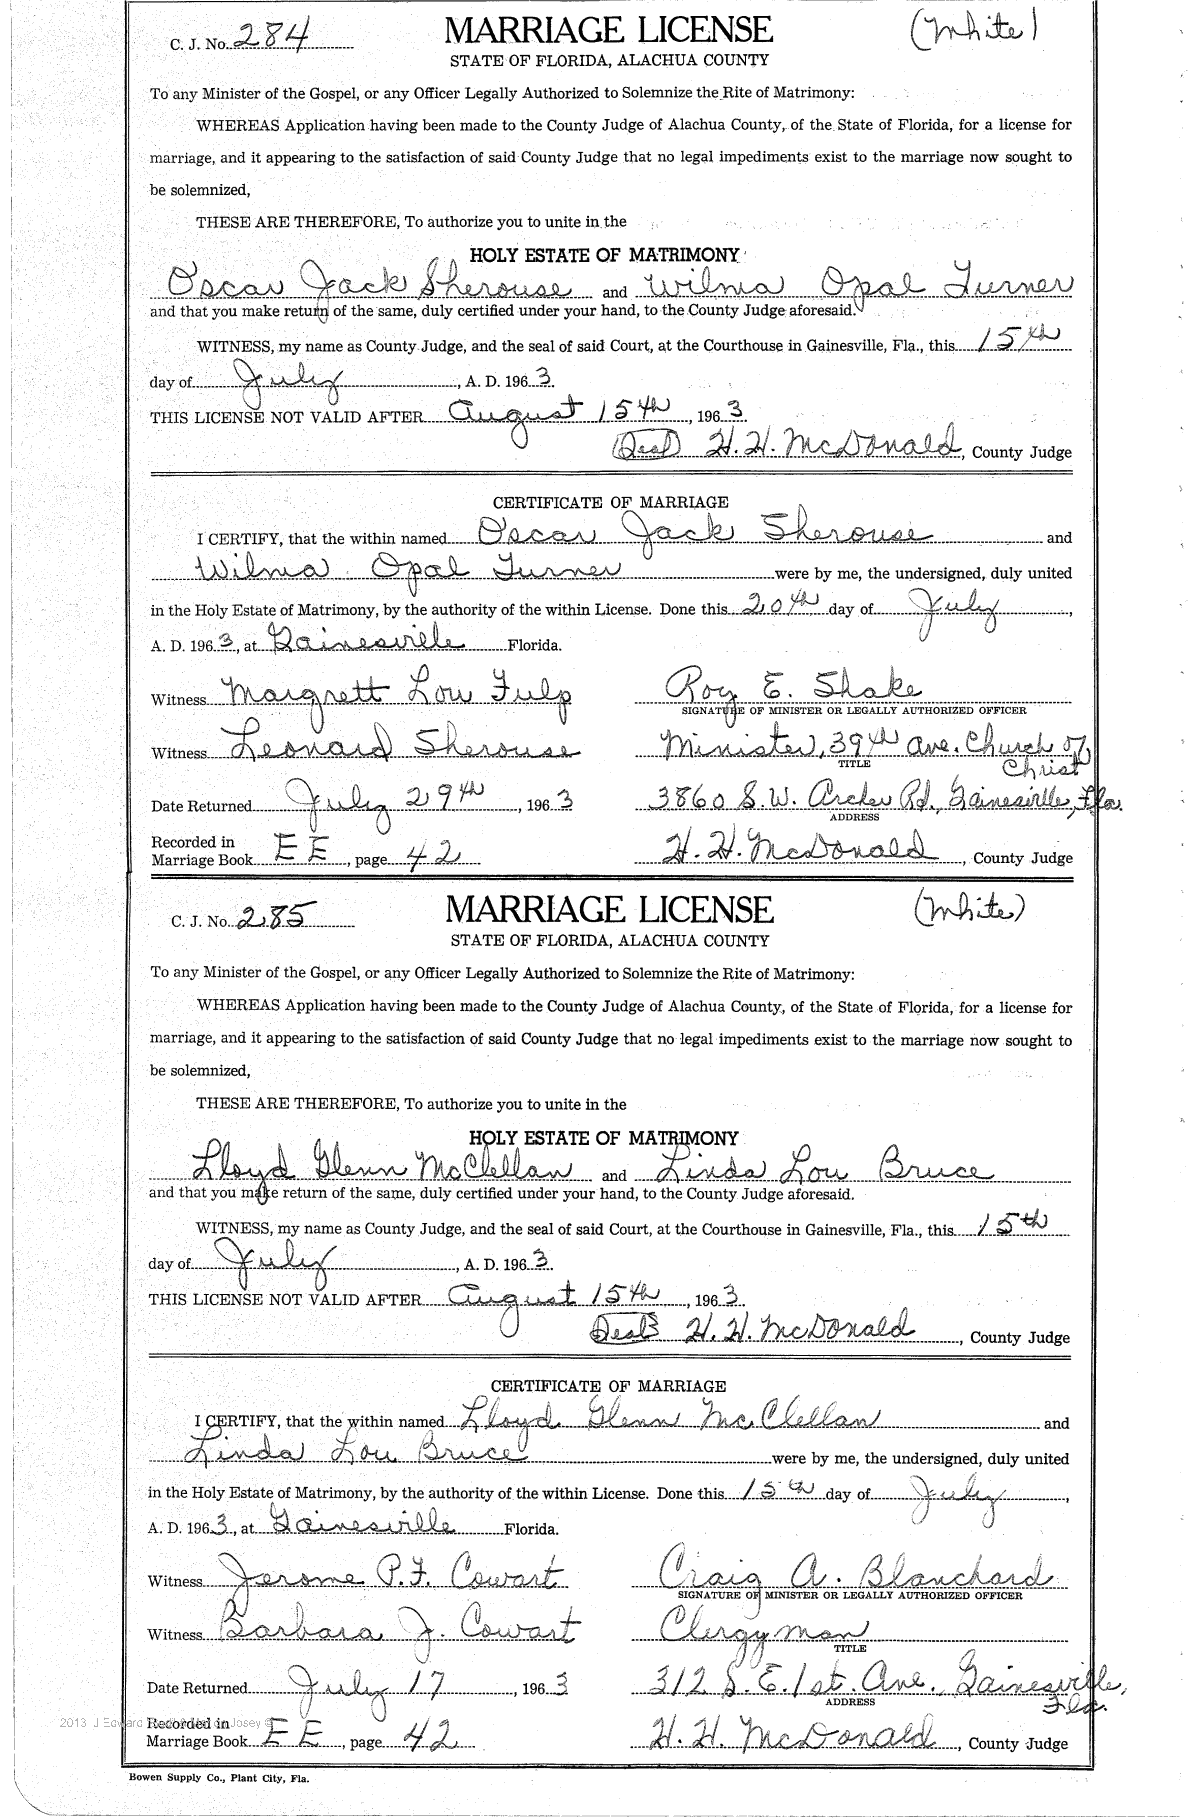 C. J. No. 284 MARRIAGE LICENSE (White)
STATE OF FLORIDA, ALACHUA COUNTY
To any Minister of the Gospel, or any Officer Legally Authorized to Solemnize the Rite of Matrimony:
WHEREAS Application having been made to the County Judge of Alachua County, of the State of Florida, for a license for
marriage, and it appearing to the satisfaction of said County Judge that no legal impediments exist to the marriage now sought to
be solemnized,
THESE ARE THEREFORE, To authorize you to unite in the
HOLY ESTATE OF MATRIMONY
Oscar Jack Sherouse and Wilma Opal Turner
and that you make return of the same, duly certified under your hand, to the County Judge aforesaid.
WITNESS, my name as County Judge, and the seal of said Court, at the Courthouse in Gainesville, Fla., this 15th
day of July, A. D. 1963.
THIS LICENSE NOT VALID AFTER August 15th, 1963
(Seal) H. H. McDonald, County Judge
CERTIFICATE OF MARRIAGE
I CERTIFY, that the within named Oscar Jack Sherouse and
Wilma Opal Turner were by me, the undersigned, duly united
in the Holy Estate of Matrimony, by the authority of the within License. Done this 20th day of July,
A. D. 1963, at Gainesville Florida.
Witness Margrett Lou Fulp Roy E. Shake
SIGNATURE OF MINISTER OR LEGALLY AUTHORIZED OFFICER
Witness Leonard Sherouse Minister, 39th Ave. Church of
Christ
TITLE
Date Returned July 29th, 1963 3860 S.W. Archer Rd., Gainesville, Fla
ADDRESS
Recorded in
Marriage Book EE, page 42 H. H. McDonald, County Judge
C. J. No. 285 MARRIAGE LICENSE (White)
STATE OF FLORIDA, ALACHUA COUNTY
To any Minister of the Gospel, or any Officer Legally Authorized to Solemnize the Rite of Matrimony:
WHEREAS Application having been made to the County Judge of Alachua County, of the State of Florida, for a license for
marriage, and it appearing to the satisfaction of said County Judge that no legal impediments exist to the marriage now sought to
be solemnized,
THESE ARE THEREFORE, To authorize you to unite in the
HOLY ESTATE OF MATRIMONY
Lloyd Glenn McClellan and Linda Lou Bruce
and that you make return of the same, duly certified under your hand, to the County Judge aforesaid.
WITNESS, my name as County Judge, and the seal of said Court, at the Courthouse in Gainesville, Fla., this 15th
day of July, A. D. 1963.
THIS LICENSE NOT VALID AFTER August 15th, 1963
(Seal) H. H. McDonald, County Judge
CERTIFICATE OF MARRIAGE
I CERTIFY, that the within named Lloyd Glenn McClellan and
Linda Lou Bruce were by me, the undersigned, duly united
in the Holy Estate of Matrimony, by the authority of the within License. Done this 15th day of July,
A. D. 1963, at Gainesville Florida.
Witness Jerome P.F. Cowart Craig A. Blanchard
SIGNATURE OF MINISTER OR LEGALLY AUTHORIZED OFFICER
Witness Barbara J. Cowart Clergyman
TITLE
Date Returned July 17, 1963 312 S.E. 1st. Ave. Gainesville,
Fla.
ADDRESS
Recorded in
Marriage Book EE, page 42 H. H. McDonald, County Judge
Bowen Supply Co., Plant City, Fla.
2013 J Edward Josey ©